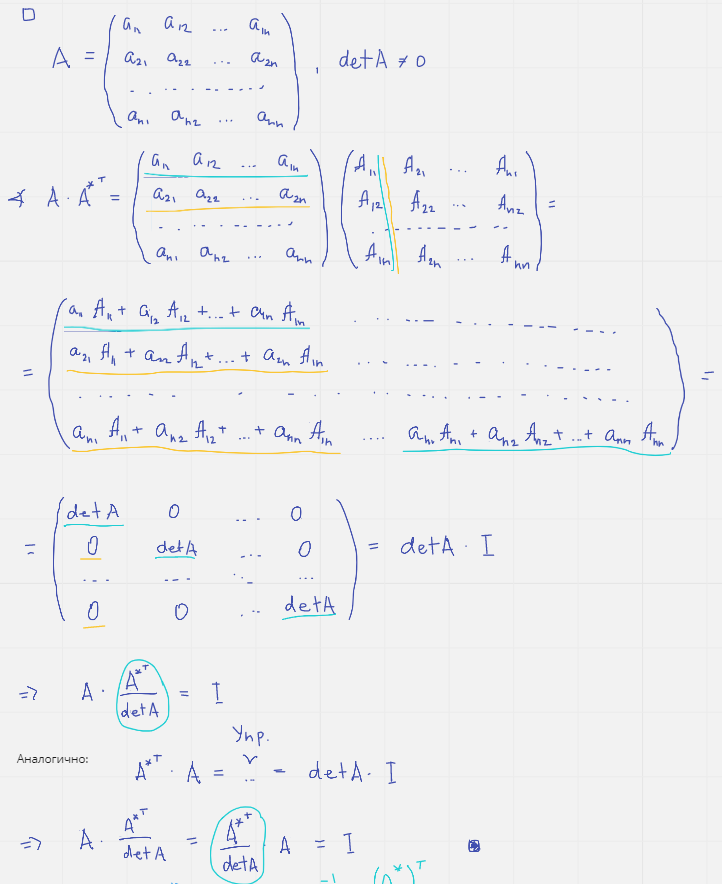 □
A = ( a₁₁ a₁₂ ... a₁ₙ
a₂₁ a₂₂ ... a₂ₙ
. . . . . . . . . .
aₙ₁ aₙ₂ ... aₙₙ ) , det A ≠ 0
∢ A · A*ᵀ = ( a₁₁ a₁₂ ... a₁ₙ
a₂₁ a₂₂ ... a₂ₙ
. . . . . . . . . .
aₙ₁ aₙ₂ ... aₙₙ ) ( A₁₁ A₂₁ ... Aₙ₁
A₁₂ A₂₂ ... Aₙ₂
. . . . . . . . . .
A₁ₙ A₂ₙ ... Aₙₙ ) =
= ( a₁₁ A₁₁ + a₁₂ A₁₂ + ... + a₁ₙ A₁ₙ . . . . . . . . . .
a₂₁ A₁₁ + a₂₂ A₁₂ + ... + a₂ₙ A₁ₙ . . . . . . . . . .
. . . . . . . . . . . . . . . . . . . .
aₙ₁ A₁₁ + aₙ₂ A₁₂ + ... + aₙₙ A₁ₙ .... aₙ₁ Aₙ₁ + aₙ₂ Aₙ₂ + ... + aₙₙ Aₙₙ ) =
= ( det A 0 ... 0
0 det A ... 0
... ... ⋱ ...
0 0 ... det A ) = det A · I
=> A · A*ᵀ / det A = I
Упр.
Аналогично: A*ᵀ · A = ... = det A · I
=> A · A*ᵀ / det A = A*ᵀ / det A · A = I ■